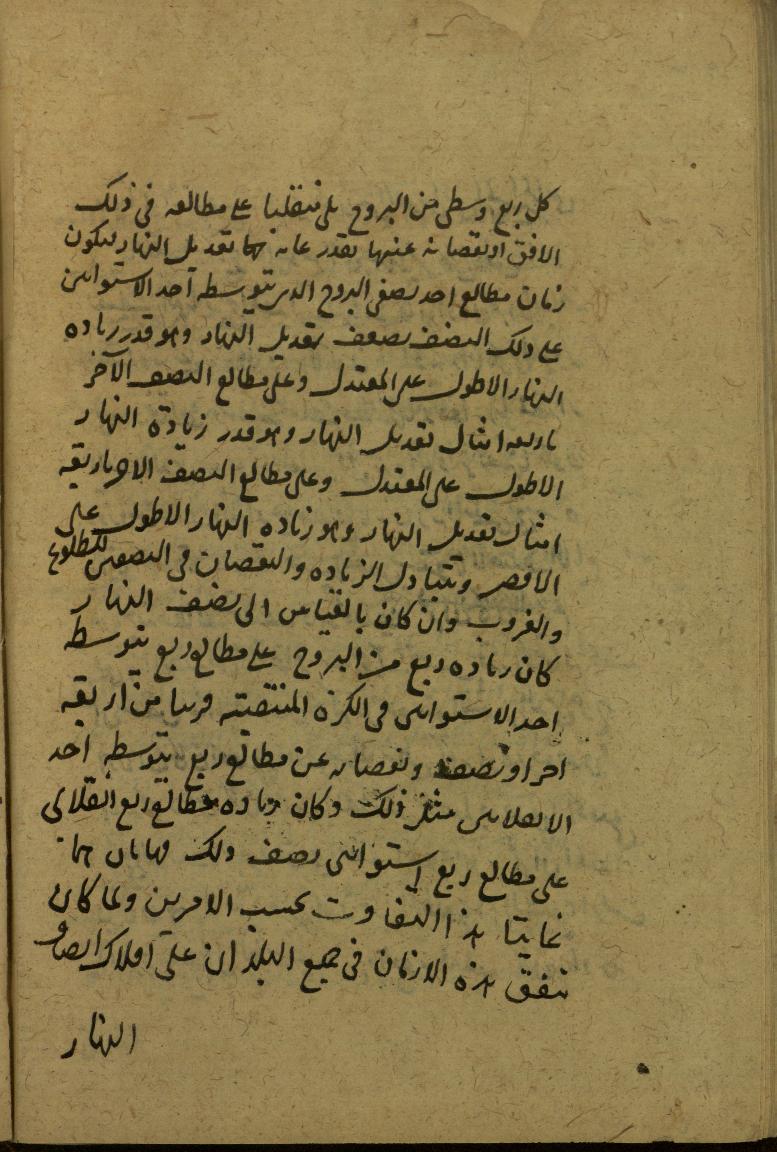 كل ربع وسطى من البروج يلى منقلبا على مطالعه فى ذلك
الافق او نقصانه عنها بقدر غايه تعديل النهار ليكون
زمان مطالع احد نصفى البروج الذى يتوسطه احد الاستوائين
على ذلك النصف بضعف تعديل النهار وهو قدر زياده
النهار الاطول على المعتدل وعلى مطالع النصف الآخر
باربعه امثال تعديل النهار وهو قدر زيادة النهار
الاطول على المعتدل وعلى مطالع النصف الاخر باربعه
امثال تعديل النهار وهو زياده النهار الاطول على
الاقصر ويتبادل الزياده والنقصان فى النصفين للطلوع
والغروب وان كان بالقياس الى نصف النهار
كان زياده ربع من البروج على مطالع ربع يتوسطه
احد الاستوائين فى الكره المنتصبه قريبا من اربعه
اجزاء ونصف ونقصانه عن مطالع ربع يتوسطه احد
الانقلابين مثل ذلك وكان زياده مطالع ربع انقلابى
على مطالع ربع استوائى نصف ذلك فهاتان هما
غايتا هذا التفاوت بحسب الامرين ولما كان
تتفق هذه الازمان فى جميع البلدان على افلاك انصاف
النهار